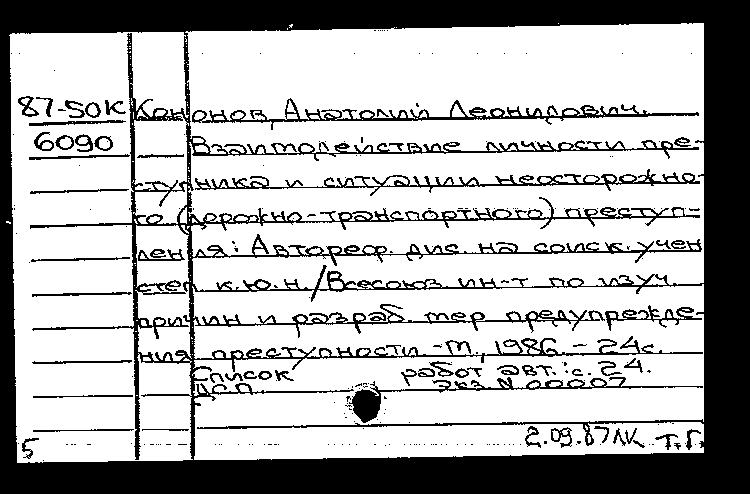 87-50К Кононов, Анатолий Леонидович.
6090 Взаимодействие личности пре-
ступника и ситуации неосторожно-
го (дорожно-транспортного) преступ-
ления: Автореф. дис. на соиск. учен
степ к.ю.н. / Всесоюз ин-т по изуч.
причин и разраб. мер предупрежде-
ния преступности - М, 1986 - 24с.
Список работ авт.: с. 24.
ДСП. Экз N 00007
5 2.09.87 ЛК Т.Г.